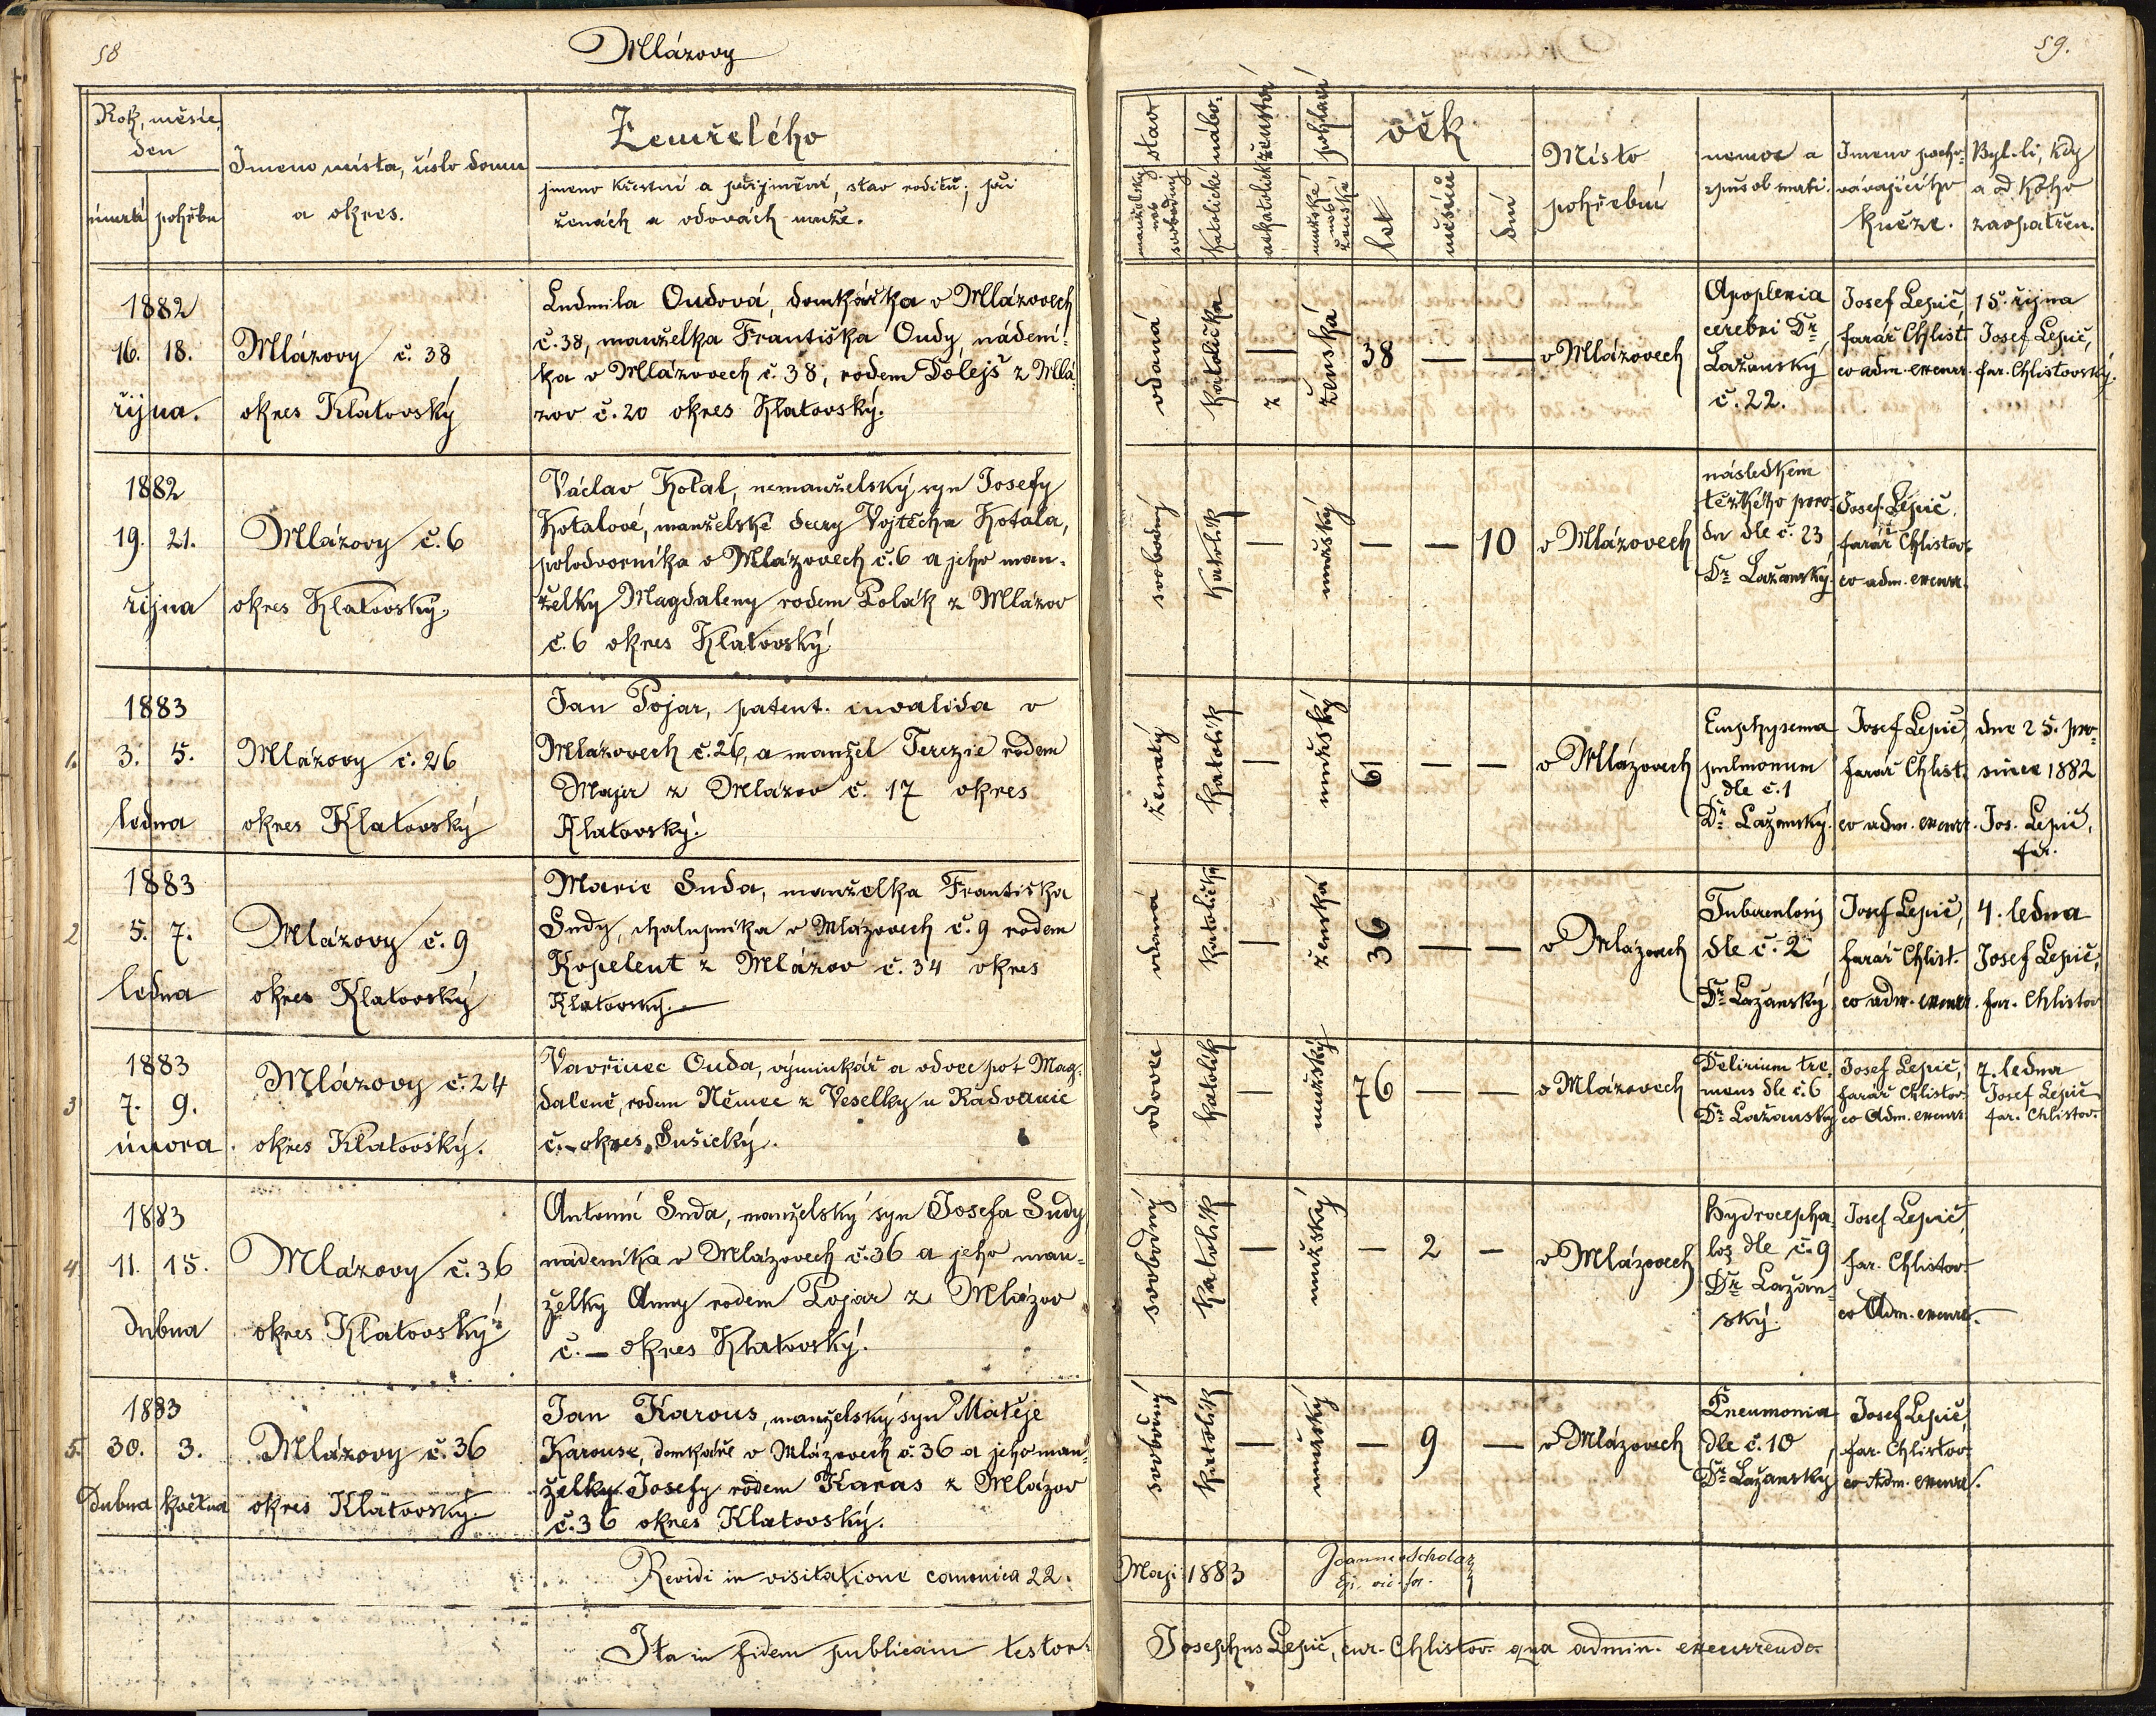 58
Mlázovy
59.
Rok, měsíc,
den
úmrtí
pohřbu
Jmeno místa, číslo domu
a okres.
Zemřelého
jmeno křestní a příjmění, stav roditů; při
ženách a vdovách muže.
stav
manželský
neb
svobodný
nábo-
ženství
katolické
akatolické
pohlaví
mužské
neb
ženské
věk
let
měsíců
dní
Místo
pohřební
nemoc a
způsob smrti.
Jmeno pocho-
vávajícího
kněze.
Byl-li, kdy
a od koho
zaopatřen.
1882
16. 18.
října.
Mlázovy č. 38
okres Klatovský
Ludmila Oudová, domkářka v Mlázovech
č. 38, manželka Františka Oudy, nádení-
ka v Mlázovech č. 38, rodem Dolejš z Mlá-
zov č. 20 okres Klatovský.
vdaná
katolička
—
ženská
38 — —
v Mlázovech
Apoplexia
cerebri Dr.
Lažanský
č. 22.
Josef Lepič,
farář Chlist.
co adm. excurr.
15. října
Josef Lepič,
far. Chlistovský.
1882
19. 21.
října
Mlázovy č. 6
okres Klatovský.
Václav Kotal, nemanželský syn Josefy
Kotalové, manželské dcery Vojtěcha Kotala,
polodvorníka v Mlázovech č. 6 a jeho man-
želky Magdaleny rodem Polák z Mlázov
č. 6 okres Klatovský
svobodný
katolík
—
mužský
— — 10
v Mlázovech
následkem
těžkého poro-
du dle č. 23
Dr. Lažanský.
Josef Lepič,
farář Chlistov.
co adm. excurr.
1.
1883
3. 5.
ledna
Mlázovy č. 26
okres Klatovský
Jan Pojar, patent. invalida v
Mlázovech č. 26, a manžel Terezie rodem
Majer z Mlázov č. 17 okres
Klatovský.
ženatý
katolík
—
mužský
61 — —
v Mlázovech
Emphysema
pulmonum
dle č. 1
Dr. Lažanský.
Josef Lepič,
farář Chlist.
co adm. excurr.
dne 25. pro-
since 1882
Jos. Lepič,
far.
2
1883
5. 7.
ledna
Mlázovy č. 9
okres Klatovský
Marie Suda, manželka Františka
Sudy, chalupníka v Mlázovech č. 9 rodem
Kopelent z Mlázov č. 34 okres
Klatovský.
vdaná
katolička
—
ženská
36 — —
v Mlázovech
Tuberculosy
dle č. 2
Dr. Lažanský
Josef Lepič,
farář Chlist.
co adm. excurr.
4. ledna
Josef Lepič,
far. Chlistov
3
1883
7. 9.
února.
Mlázovy č. 24
okres Klatovský.
Vavřinec Ouda, výminkář a vdovec po † Mag-
daleně, rodem Němec z Veselky u Radvanic
č. – okres Sušický.
vdovec
katolík
—
mužský
76 — —
v Mlázovech
Delirium tre-
mens dle č. 6
Dr. Lažanský
Josef Lepič,
farář Chlistov.
co Adm. excurr.
7. ledna
Josef Lepič
far. Chlistov.
4
1883
11. 15.
dubna
Mlázovy č. 36
okres Klatovský
Antonín Suda, manželský syn Josefa Sudy
nádeníka v Mlázovech č. 36 a jeho man-
želky Anny rodem Pojar z Mlázov
č. – okres Klatovský.
svobodný
katolík
—
mužský
— 2 —
v Mlázovech
Hydrocepha-
los dle č. 9
Dr. Lažan-
ský.
Josef Lepič,
far. Chlistov.
co Adm. excurr.
5.
1883
30. 3.
dubna května
Mlázovy č. 36
okres Klatovský.
Jan Karous, manželský syn Matěje
Karouse, domkáře v Mlázovech č. 36 a jeho man-
želky Josefy rodem Karas z Mlázov
č. 36 okres Klatovský.
svobodný
katolík
—
mužský
— 9 —
v Mlázovech
Pneumonia
dle č. 10
Dr. Lažanský
Josef Lepič,
far. Chlistov.
co Adm. excurr.
Revidi in visitatione canonica 22. Maji 1883
Joannes Scholaz
Ep. vic. for.
Ita in fidem publicam testor. Josephus Lepič, cur. Chlistov. qua admin. excurrendo.